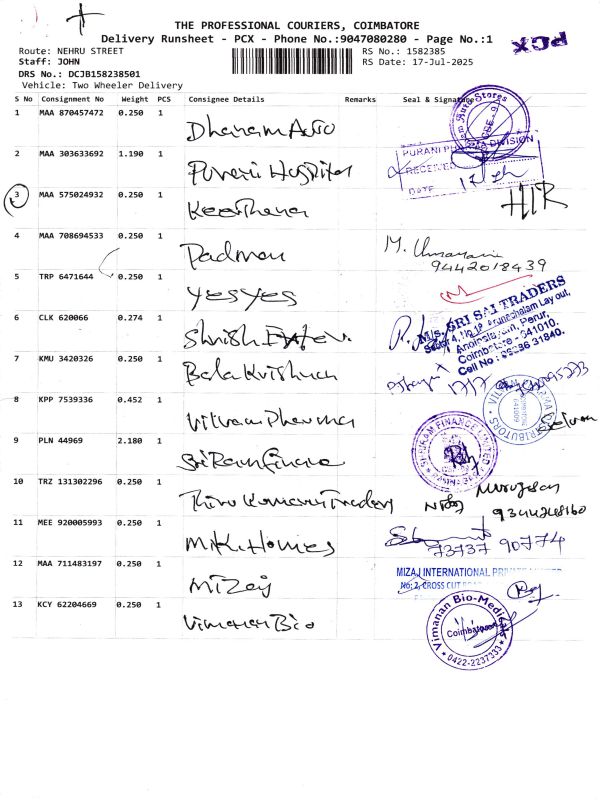 THE PROFESSIONAL COURIERS, COIMBATORE
Delivery Runsheet - PCX - Phone No.:9047080280 - Page No.:1
PCX
Route: NEHRU STREET
RS No.: 1582385
Staff: JOHN
RS Date: 17-Jul-2025
DRS No.: DCJB158238501
Vehicle: Two Wheeler Delivery
S No Consignment No Weight PCS Consignee Details Remarks Seal & Signature
1 MAA 870457472 0.250 1 Dharam Auto
2 MAA 303633692 1.190 1 Purani Hospital
PURANI DIVISION
RECEIVED
DATE 17
3 MAA 575024932 0.250 1 Keerthana
4 MAA 708694533 0.250 1 Padman
M.
9442018439
5 TRP 6471644 0.250 1 yes yes
6 CLK 620066 0.274 1 Shrish
M/s. SRI SAI TRADERS
Arunachalam Layout,
Perur,
Coimbatore - 641010.
Cell No : 98836 31840.
7 KMU 3420326 0.250 1 Bala Krishnan
17/7
8 KPP 7539336 0.452 1 Vikram Pharma
DISTRIBUTORS
Selvan
9 PLN 44969 2.180 1 Sri Ram Finance
SHRIRAM FINANCE LIMITED
10 TRZ 131302296 0.250 1 Thiru Kumaran Traders
Murugesan
9344248160
11 MEE 920005993 0.250 1 M.K. Homes
73737 90774
12 MAA 711483197 0.250 1 Mizaj
MIZAJ INTERNATIONAL PRIVATE LIMITED
No: 2, CROSS CUT ROAD
13 KCY 62204669 0.250 1 Vimanan Bio
Vimanan Bio-Medicals
Coimbatore
0422-2237333